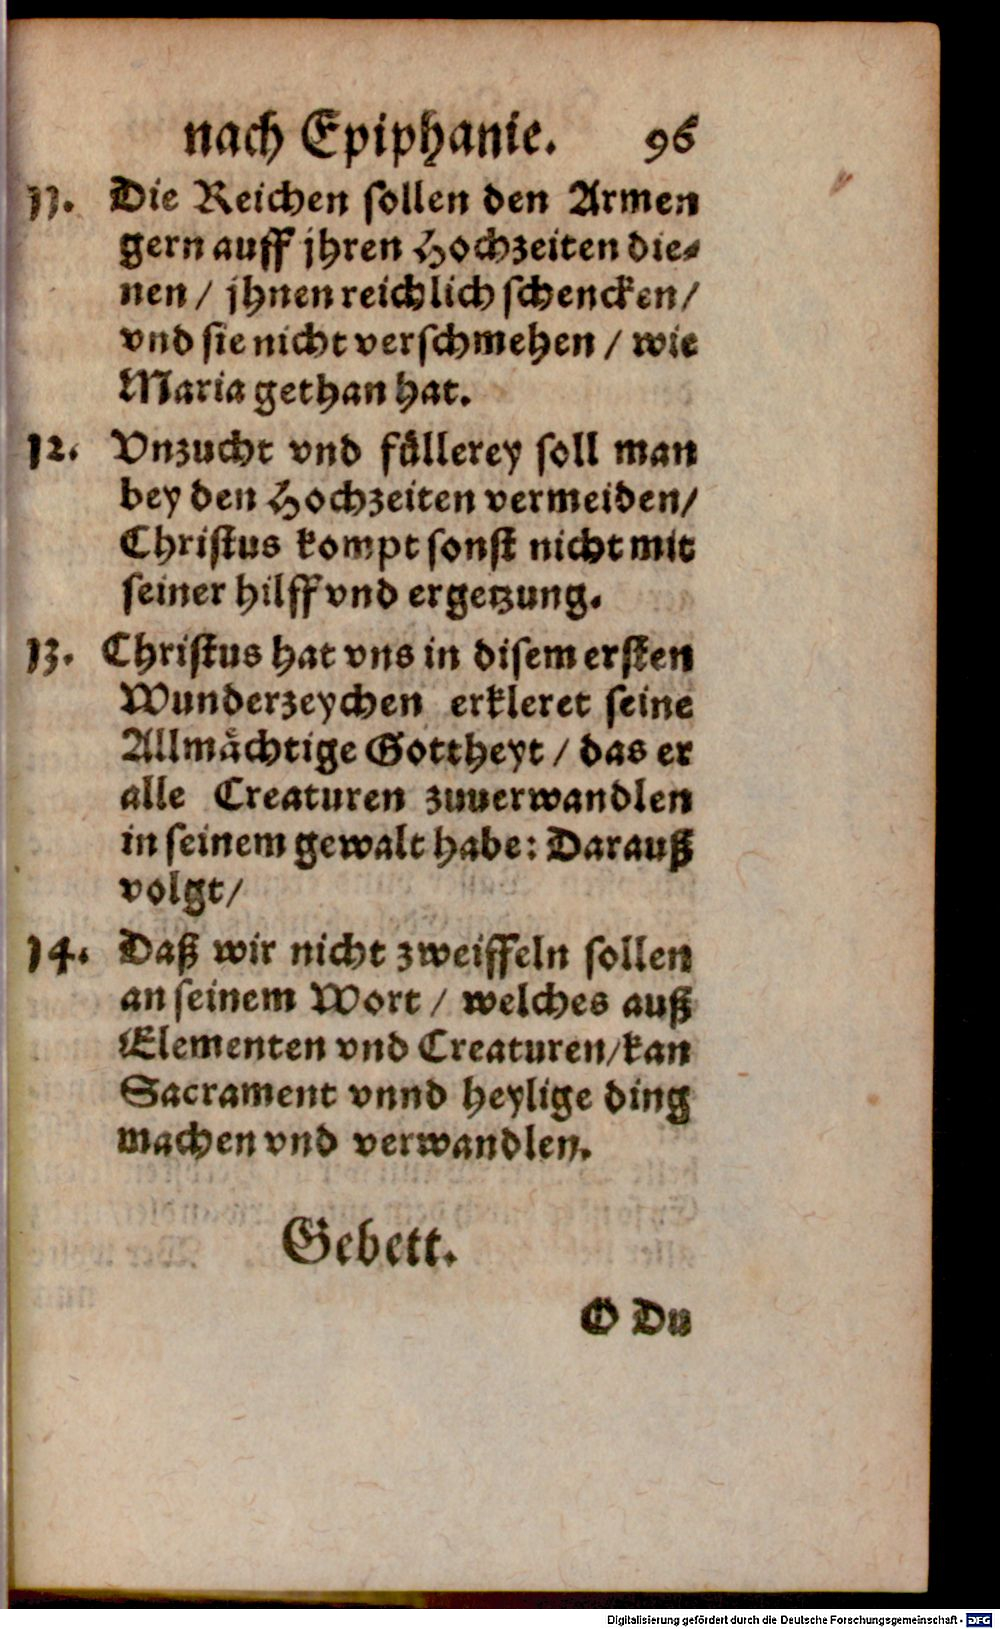 nach Epiphanie. 96
11. Die Reichen sollen den Armen
gern auff jhren Hochzeiten die-
nen / jhnen reichlich schencken /
vnd sie nicht verschmehen / wie
Maria gethan hat.
12. Vnzucht vnd füllerey soll man
bey den Hochzeiten vermeiden /
Christus kompt sonst nicht mit
seiner hilff vnd ergetzung.
13. Christus hat vns in disem ersten
Wunderzeychen erkleret seine
Allmächtige Gottheyt / das er
alle Creaturen zuuerwandlen
in seinem gewalt habe: Darauß
volgt /
14. Daß wir nicht zweiffeln sollen
an seinem Wort / welches auß
Elementen vnd Creaturen / kan
Sacrament vnnd heylige ding
machen vnd verwandlen.
Gebett.
O Du
Digitalisierung gefördert durch die Deutsche Forschungsgemeinschaft - DFG